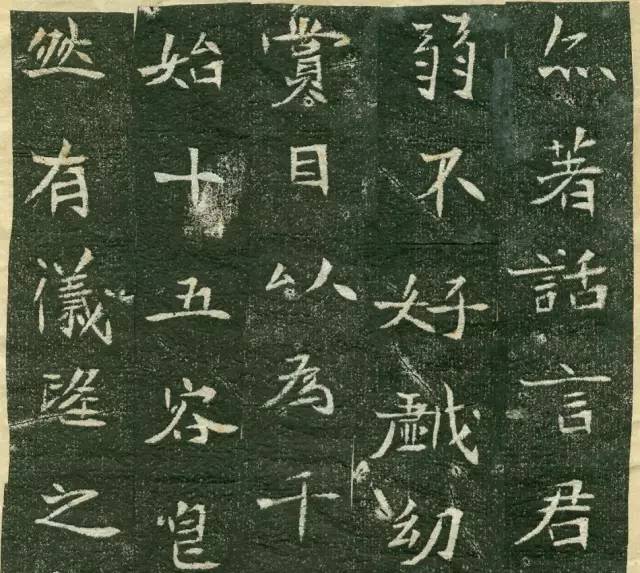 著話言君
弱不好戯幼
賞目以為千
始十五容
然有儀之